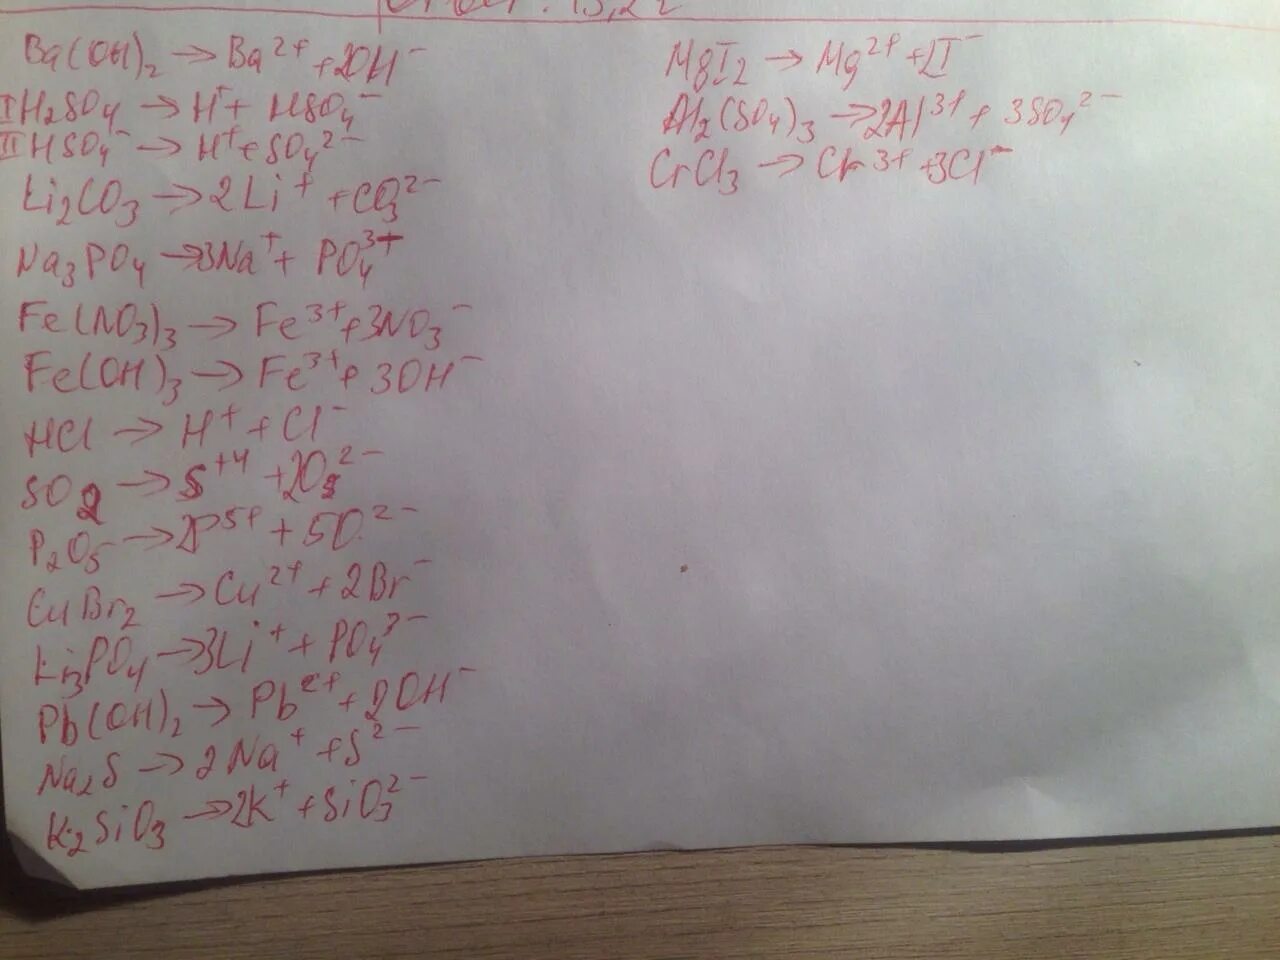 Ba(OH)₂ → Ba²⁺ + 2OH⁻
I H₂SO₄ → H⁺ + HSO₄⁻
II HSO₄⁻ → H⁺ + SO₄²⁻
Li₂CO₃ → 2Li⁺ + CO₃²⁻
Na₃PO₄ → 3Na⁺ + PO₄³⁺
Fe(NO₃)₃ → Fe³⁺ + 3NO₃⁻
Fe(OH)₃ → Fe³⁺ + 3OH⁻
HCl → H⁺ + Cl⁻
SO₂ → S⁺⁴ + 2O₂²⁻
P₂O₅ → 2P⁵⁺ + 5O²⁻
CuBr₂ → Cu²⁺ + 2Br⁻
Li₃PO₄ → 3Li⁺ + PO₄³⁻
Pb(OH)₂ → Pb²⁺ + 2OH⁻
Na₂S → 2Na⁺ + S²⁻
K₂SiO₃ → 2K⁺ + SiO₃²⁻
MgI₂ → Mg²⁺ + 2I⁻
Al₂(SO₄)₃ → 2Al³⁺ + 3SO₄²⁻
CrCl₃ → Cr³⁺ + 3Cl⁻